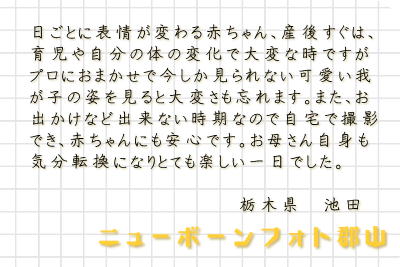 日ごとに表情が変わる赤ちゃん、産後すぐは、
育児や自分の体の変化で大変な時ですが
プロにおまかせで今しか見られない可愛い我
が子の姿を見ると大変さも忘れます。また、お
出かけなど出来ない時期なので自宅で撮影
でき、赤ちゃんにも安心です。お母さん自身も
気分転換になりとても楽しい一日でした。
栃木県　池田
ニューボーンフォト郡山